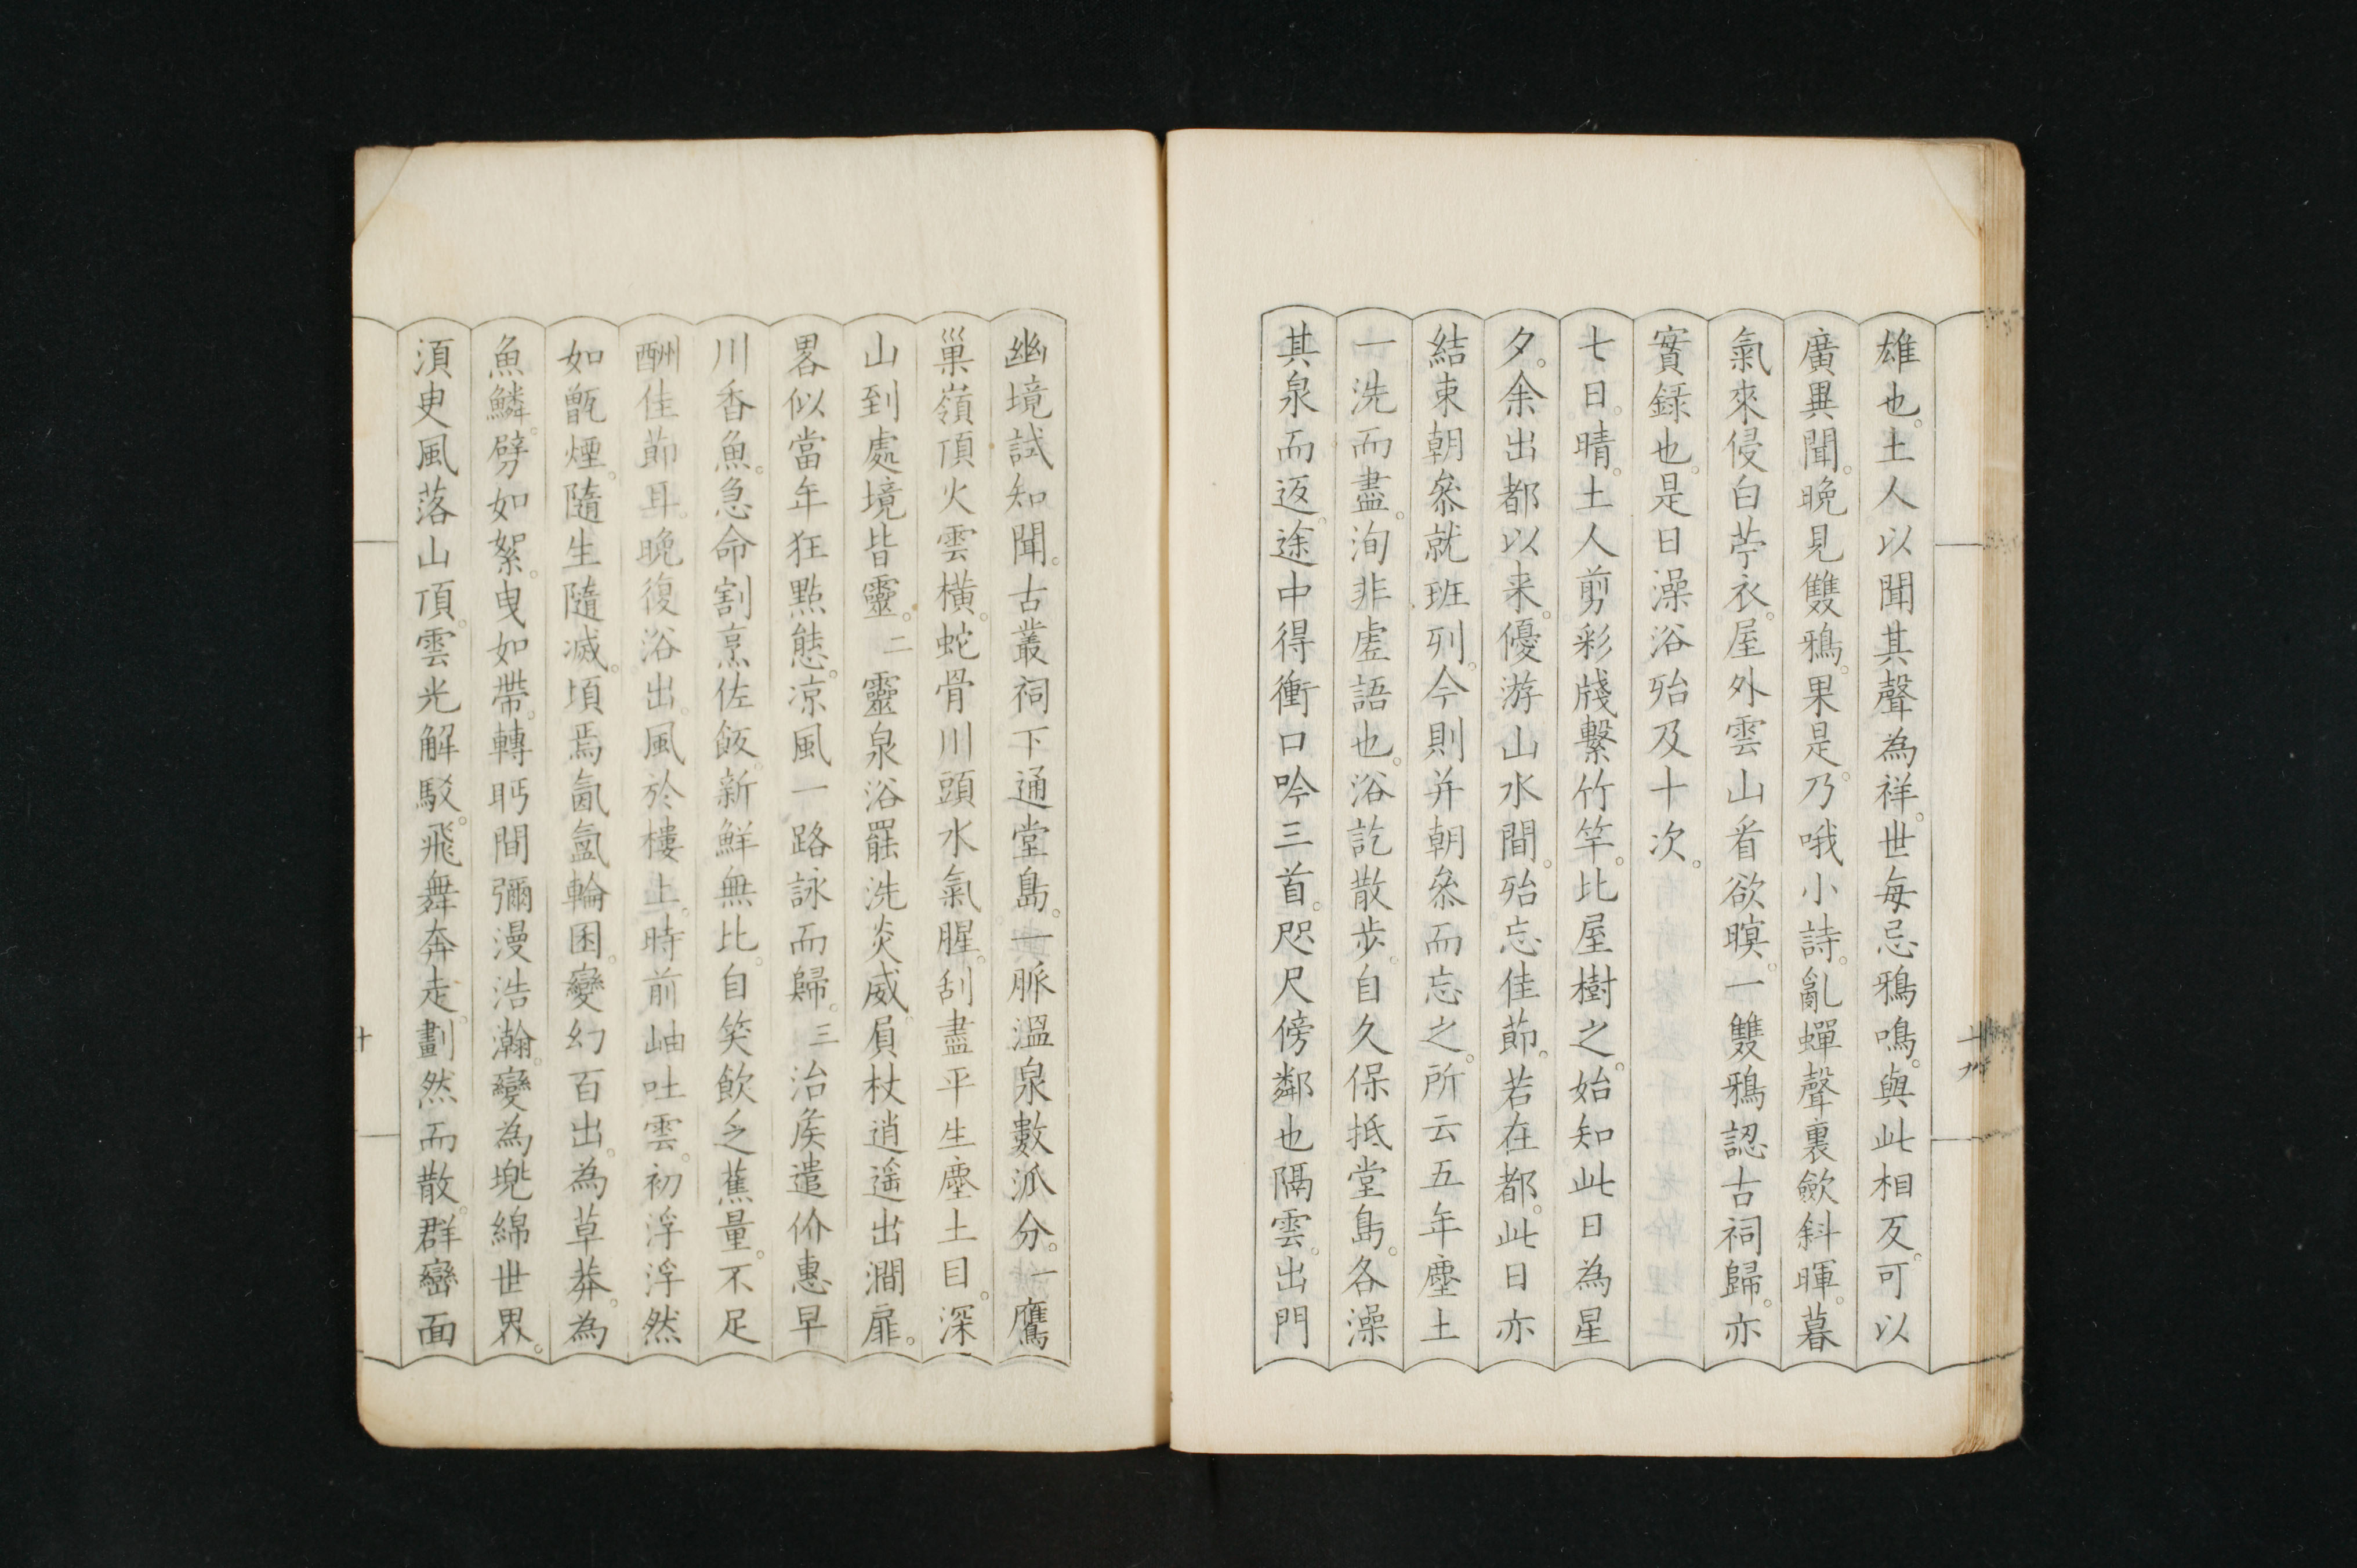 雄也。土人以聞其聲為祥。世每忌鴉鳴。與此相反。可以
廣異聞。晚見雙鴉。果是。乃哦小詩。亂蟬聲裏斂斜暉。暮
氣來侵白苧衣。屋外雲山看欲暝。一雙鴉認古祠歸。亦
實録也。是日澡浴殆及十次。
七日。晴。土人剪彩牋繫竹竿。比屋樹之。始知此日為星
夕。余出都以来。優游山水間。殆忘佳節。若在都。此日亦
結束朝叅就班列。今則并朝叅而忘之。所云五年塵土
一洗而盡。洵非虛語也。浴訖散歩。自久保抵堂島。各澡
其泉而返。途中得衝口吟三首。咫尺傍鄰也隔雲。出門
十九
幽境試知聞。古叢祠下通堂島。一脈溫泉數派分。一鷹
巢嶺頂火雲橫。蛇骨川頭水氣腥。刮盡平生塵土目。深
山到處境皆靈。二靈泉浴罷洗炎威。肩杖逍遥出澗扉。
畧似當年狂點態。凉風一路詠而歸。三治矦遣价惠早
川香魚。急命割烹佐飯。新鮮無比。自笑飲乏蕉量。不足
酬佳節耳。晚復浴出。風於樓上。時前岫吐雲。初浮浮然
如甑煙。隨生隨滅。頃焉氤氳輪囷。變幻百出。為草莽。為
魚鱗。劈如絮。曳如帶。轉眄間彌漫浩瀚。變為兠綿世界。
湏臾風落山頂。雲光解駁。飛舞奔走。劃然而散。群巒面